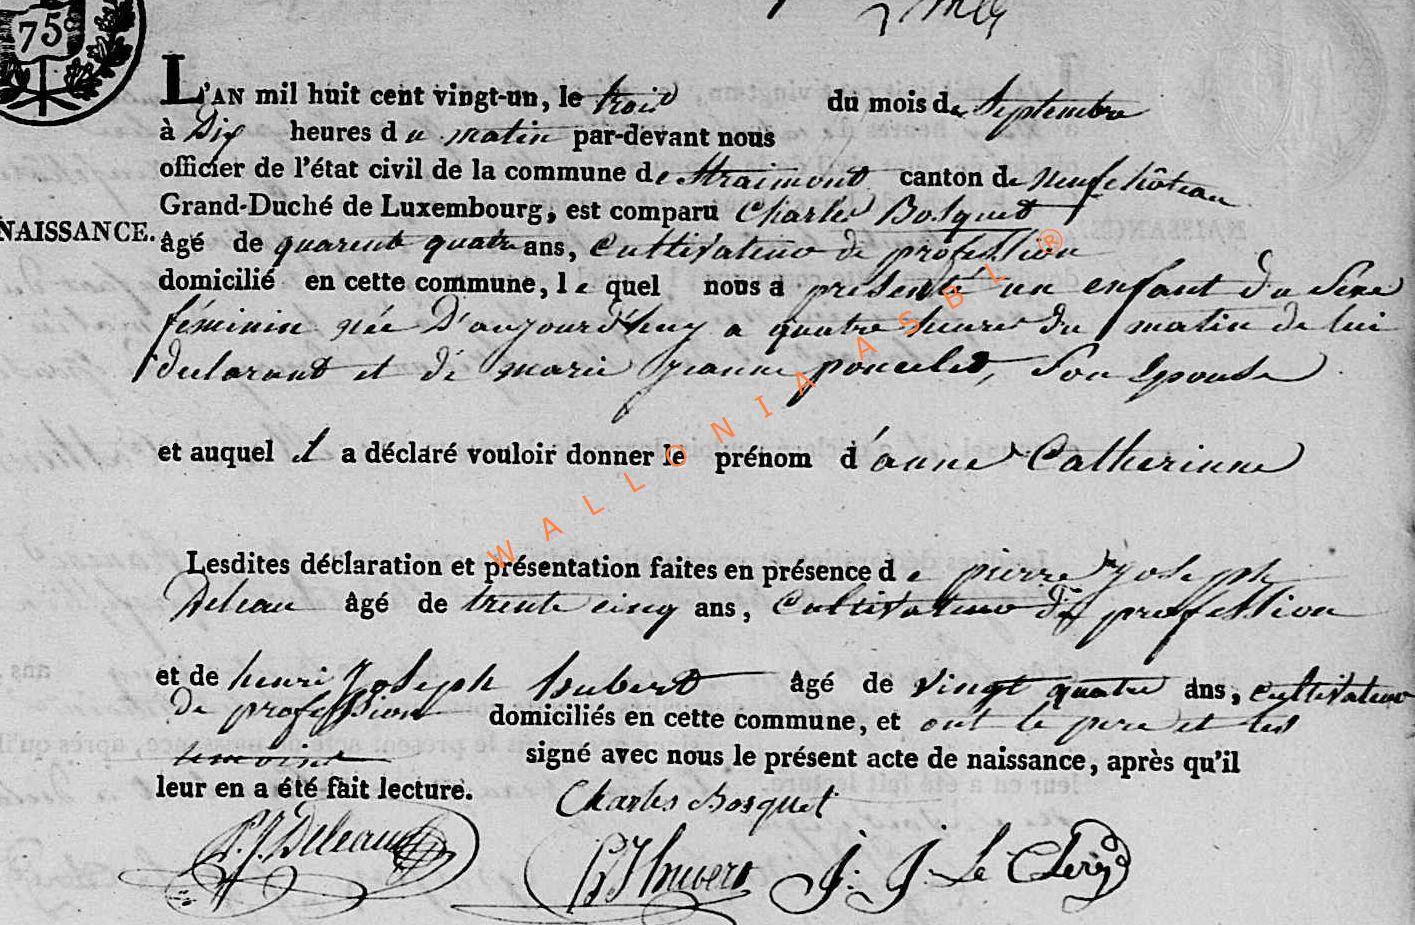 75
L'AN mil huit cent vingt-un, le trois du mois de Septembre
à Dix heures du matin par-devant nous
officier de l'état civil de la commune de Straimont canton de neufchâteau
Grand-Duché de Luxembourg, est comparu Charles Bosquet
NAISSANCE.
âgé de quarente quatre ans, Cultivateur de profession
domicilié en cette commune, le quel nous a présenté un enfant du Sexe
féminin née D'aujourd'huy a quatre heures du matin de lui
declarant et de marie jeanne poncelet, Son Epouse
et auquel il a déclaré vouloir donner le prénom d'anne Catherinne
Lesdites déclaration et présentation faites en présence de pierre joseph
Deleau âgé de trente cinq ans, Cultivateur de profession
et de henri Joseph hubert âgé de vingt quatre ans, cultivateur
de profession domiciliés en cette commune, et ont le pere et les
temoins signé avec nous le présent acte de naissance, après qu'il
leur en a été fait lecture.
Charles Bosquet
P. J. Deleau
hubert
J. J. Le Clerq
WALLONIA ASBL ®